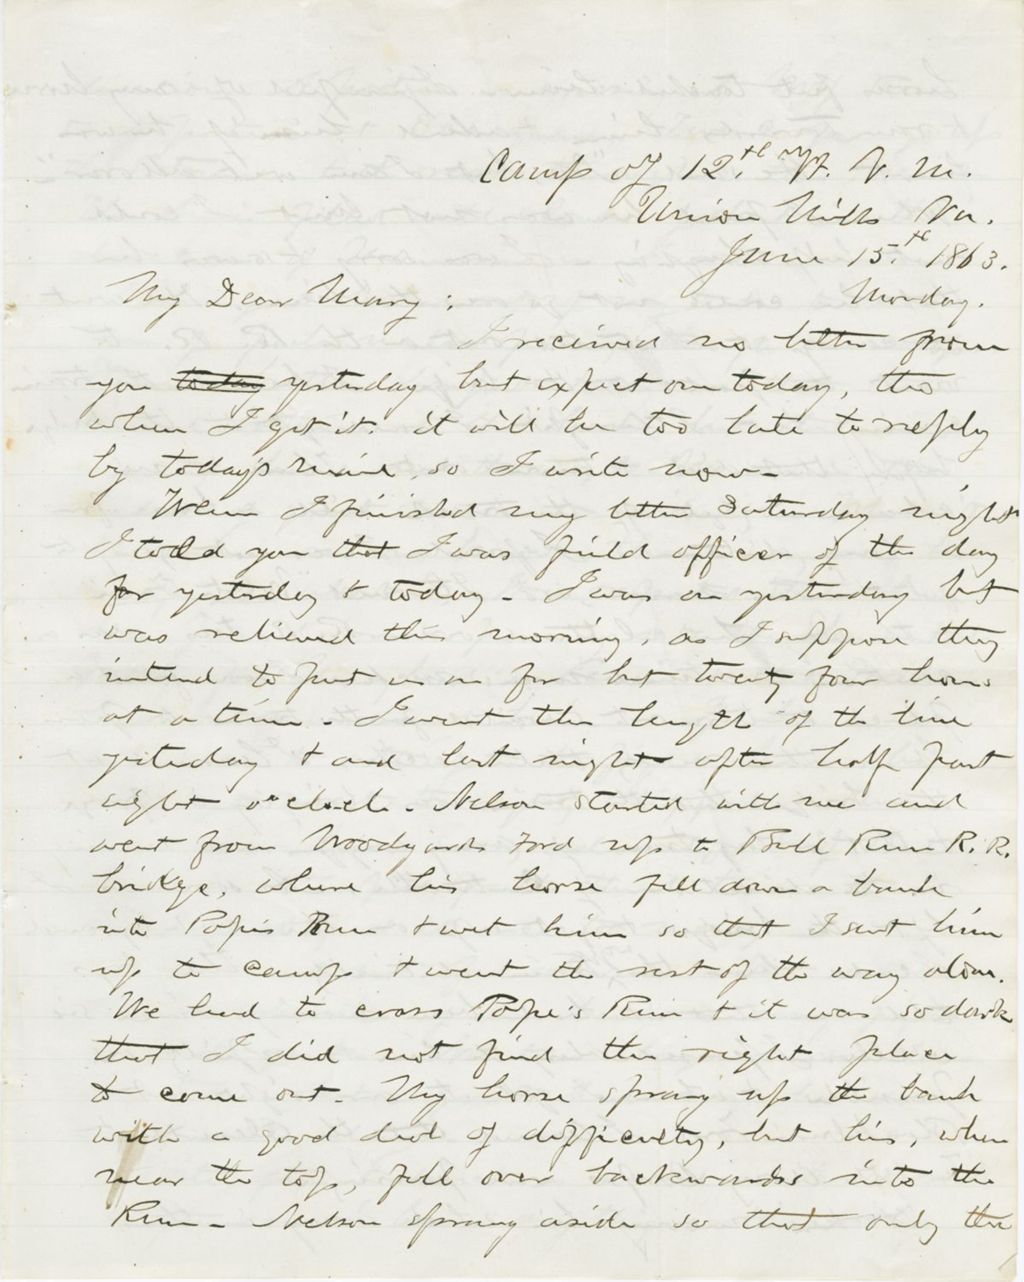 Camp of 12.th Vt. V. M.
Union Mills Va.
June 15.th 1863.
My Dear Mary; Monday.
I received no letter from
you today yesterday but expect one today, tho
when I get it. it will be too late to reply
by todays mail, so I write now-
When I finished my letter Saturday night
I told you that I was field officer of the day
for yesterday & today - I was on yesterday but
was relieved this morning, as I suppose they
intend to put us on for but twenty four hours
at a time - I went the length of the line
yesterday & and last night after half past
eight o'clock - Nelson started with me and
went from Woodyards Ford up to Bull Run R. R.
bridge, where his horse fell down a bank
into Pope's Run & wet him so that I sent him
up to camp & went the rest of the way alone.
We had to cross Pope's Run & it was so dark
that I did not find the right place
to come out - My horse sprang up the bank
with a good deal of difficulty, but his, when
near the top, fell over backwards into the
Run - Nelson sprang aside so that only the